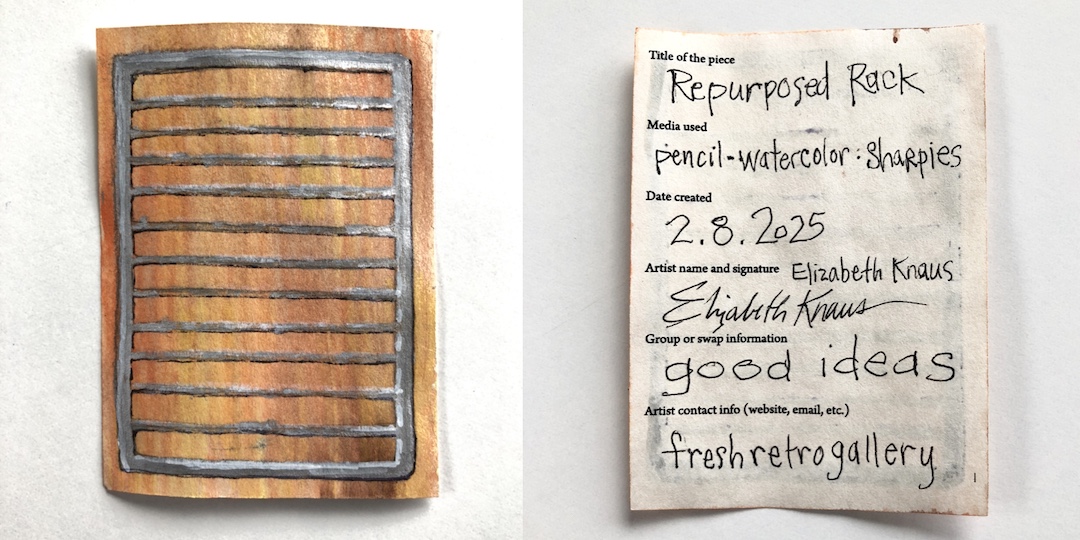 Title of the piece
Repurposed Rack
Media used
pencil-watercolor: Sharpies
Date created
2.8.2025
Artist name and signature Elizabeth Knaus
Elizabeth Knaus
Group or swap information
good ideas
Artist contact info (website, email, etc.)
freshretrogallery